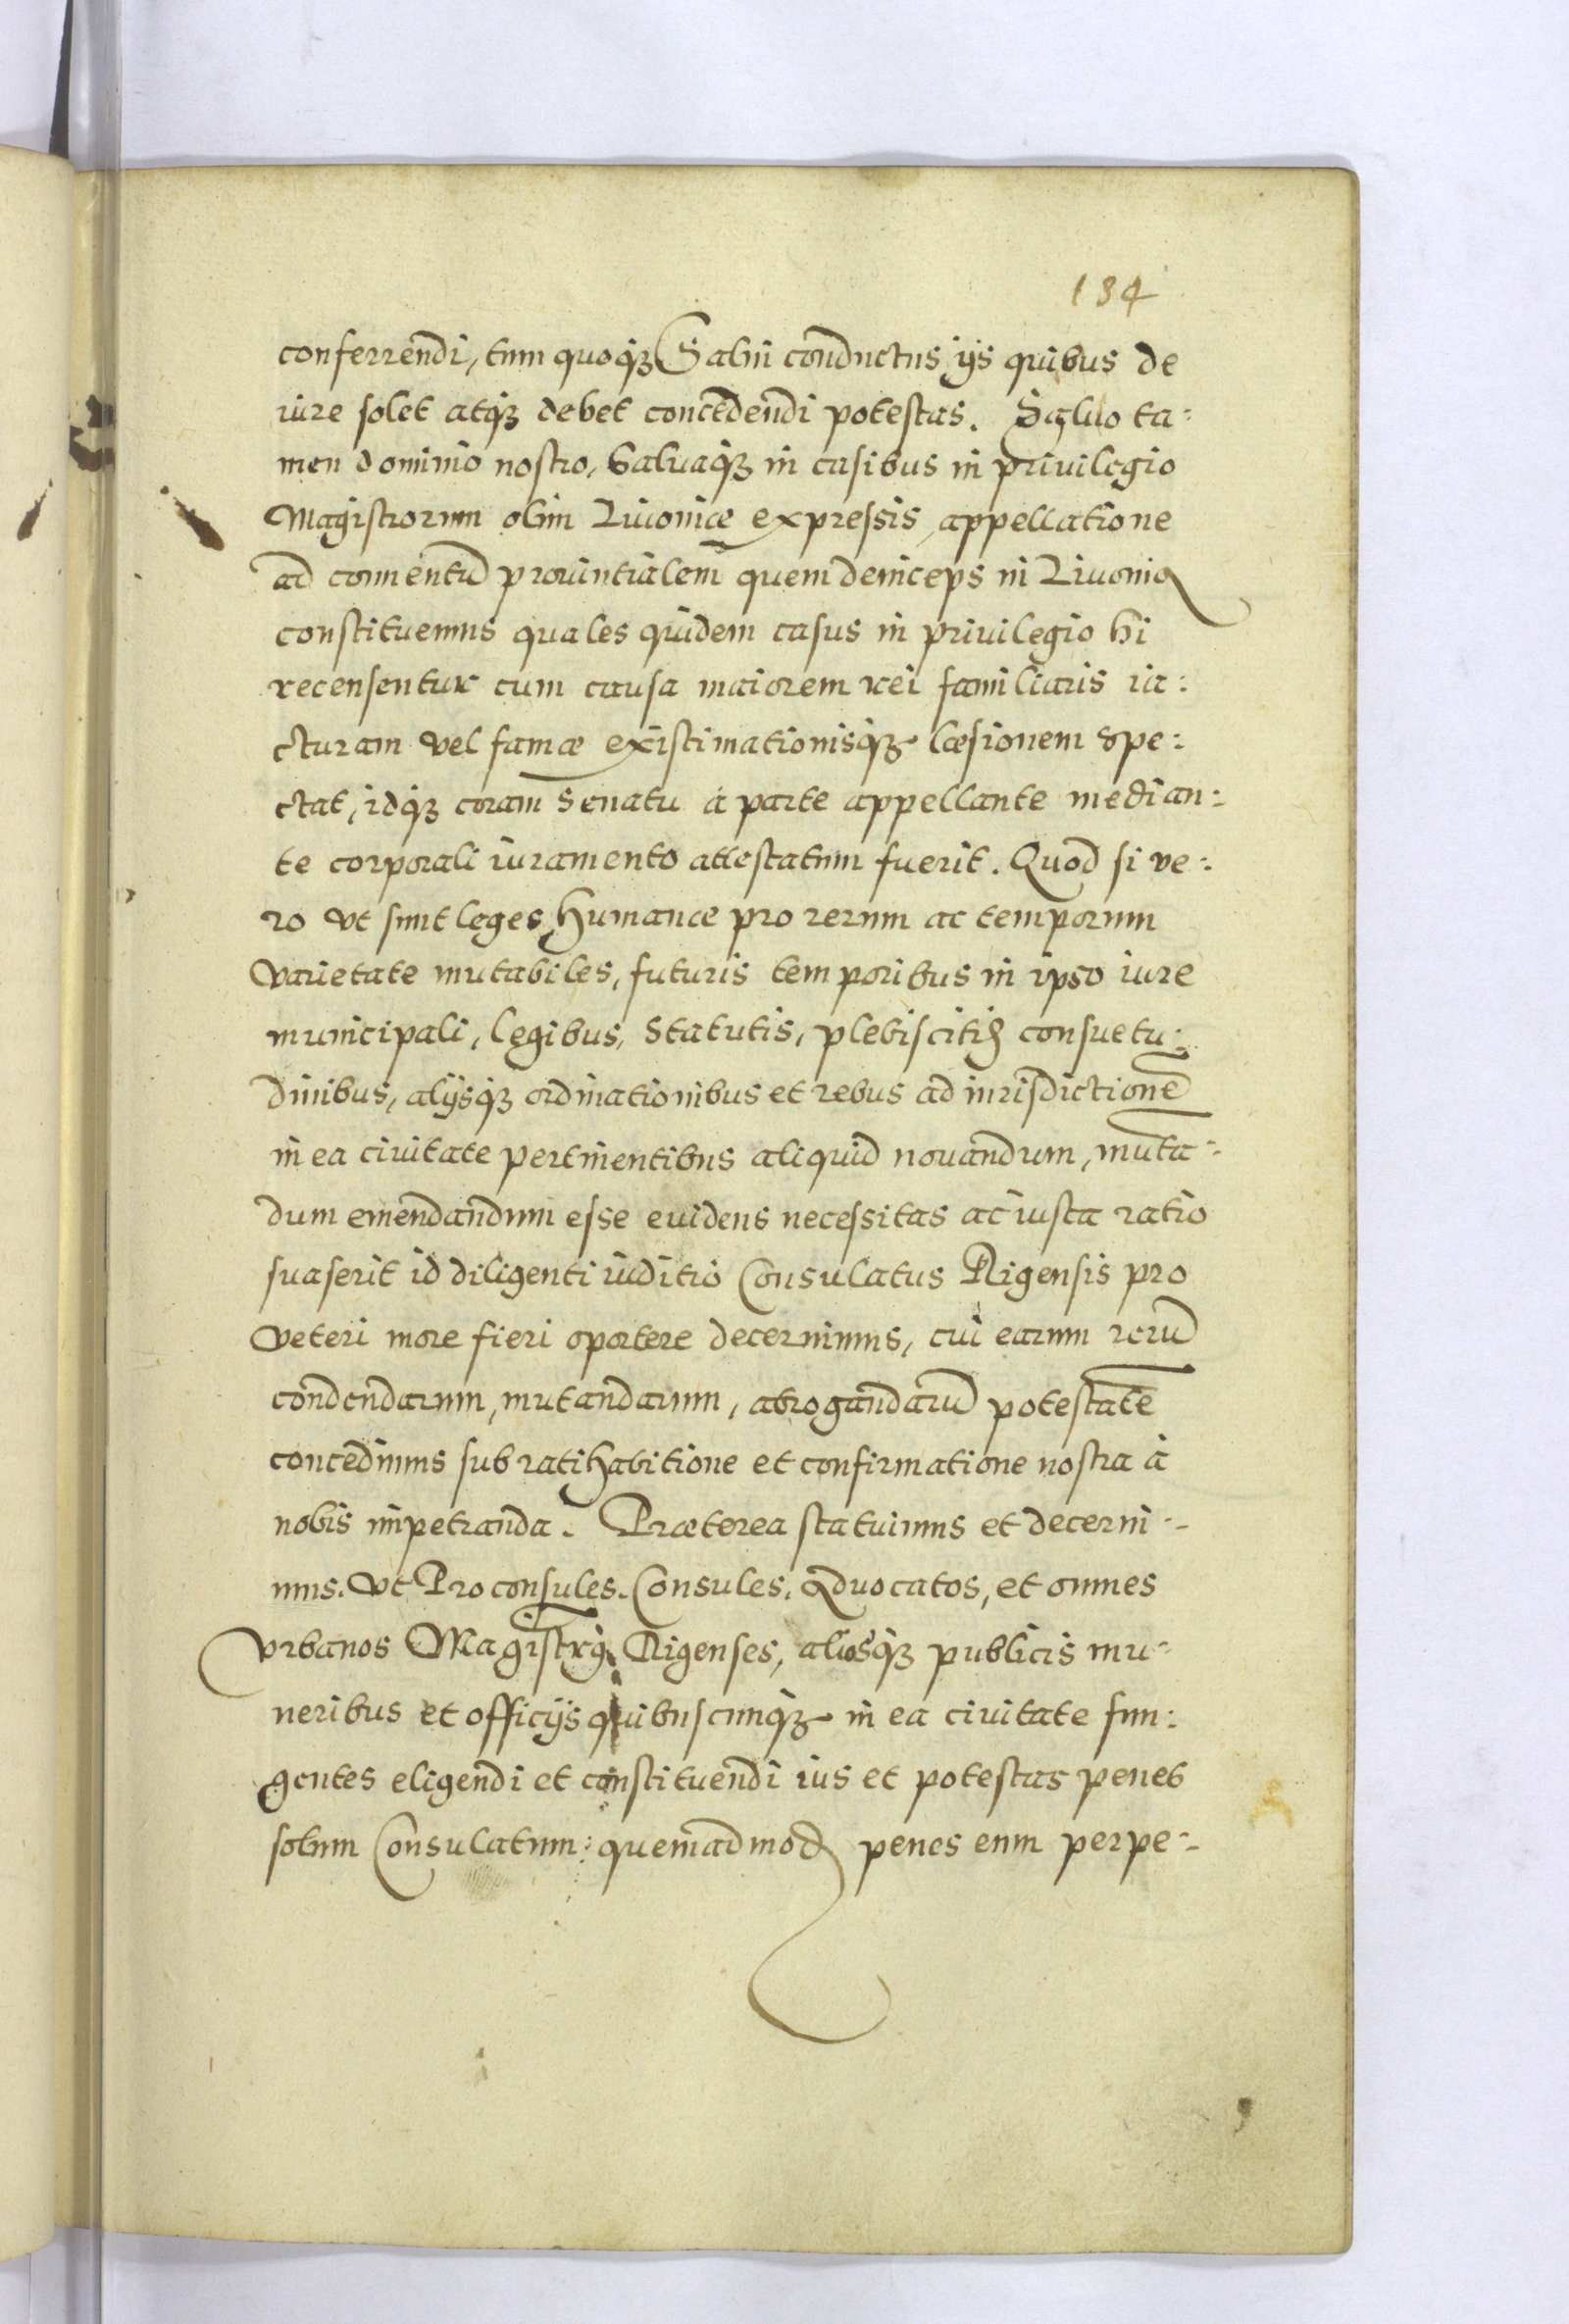 134
conferrendi, tum quoqʒ Salui conductus ijs quibus de
iure solet atqʒ debet concedendi potestas. Saluo ta:
men dominio nostro, Saluaqʒ in casibus in priuilegio
Magistrorum olim Liuoniæ expressis appellatione
ad conuentū prouintialem quem deinceps in Liuonia
constituemus quales quidem casus in priuilegio hi
recensentur cum causa maiorem rei familiaris ia:
cturam vel famæ existimationisqʒ læsionem spe:
ctat, idqʒ coram Senatu à parte appellante median:
te corporali iuramento attestatum fuerit. Quod si ve:
ro vt sunt leges humanæ pro rerum ac temporum
varietate mutabiles, futuris temporibus in ipso iure
municipali, legibus, Statutis, plebiscitis consuetu:
dinibus, alijsqʒ ordinationibus et rebus ad iurisdictionē
in ea ciuitate pertinentibus aliquid nouandum, muta:
dum emendandum esse euidens necessitas ac iusta ratio
suaserit id diligenti iuditio Consulatus Rigensis pro
veteri more fieri oportere decernimus, cui earum rerū
condendarum, mutandarum, abrogandarū potestatē
concedimus sub ratihabitione et confirmatione nostra à
nobis impetranda. Præterea statuimus et decerni:
mus. vt Proconsules. Consules. Aduocatos, et omnes
vrbanos Magistrꝯ. Rigenses, aliosqʒ publicis mu:
neribus et officijs quibuscunqʒ in ea ciuitate fun:
gentes eligendi et constituendi ius et potestas penes
solum Consulatum: quemadmod penes eum perpe: